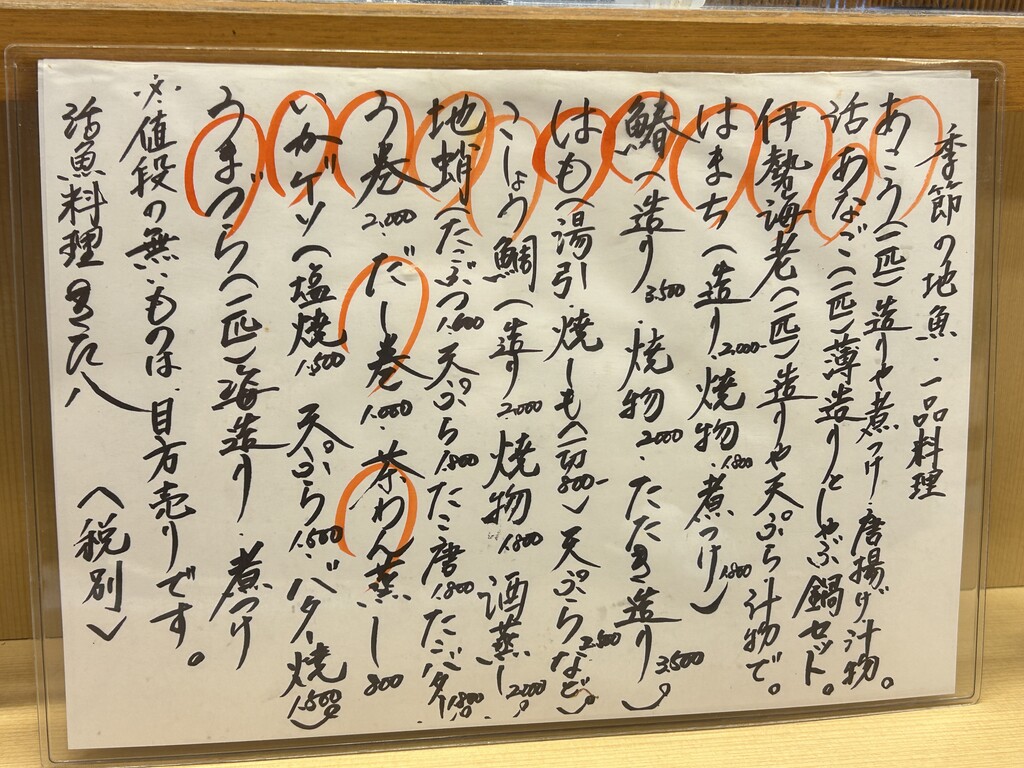 季節の地魚・一品料理
あこう(一匹)造りや煮つけ・唐揚げ・汁物。
活あなご(一匹)薄造りとしゃぶ鍋セット。
伊勢海老(一匹)造りや天ぷら・汁物で。
はまち(造り2,000- 焼物1,800・煮つけ1,800)
鰆(造り3,500 焼物2,000・たたき造り3,500)
はも(湯引・焼しも(一切800-)天ぷら2,500など。)
こしょう鯛(造り2,000 焼物1,800 酒蒸し2,000)
地蛸(たこぶつ1,600 天ぷら1,800 たこ唐1,800 たこバター1,800)
う巻2,000 だし巻1,000・茶わん蒸し800
いかゲソ(塩焼1,500 天ぷら1,500・バター焼1,500)
うまづら(一匹)造り・煮つけ
※値段の無いものは、目方売りです。
活魚料理 (税別)